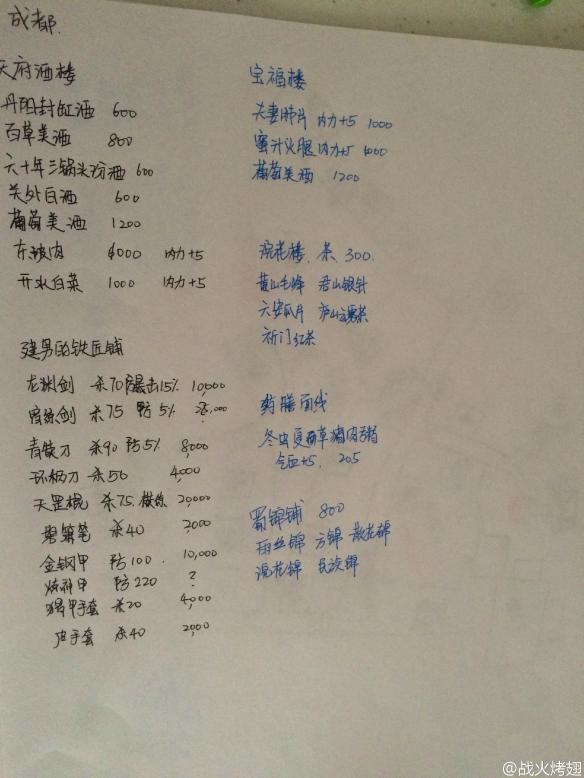 成都.
天府酒楼
丹阳封缸酒 600
百草美酒 800
六十年三锅头汾酒 600
关外白酒 600
葡萄美酒 1200
东坡肉 4000 内力+5
开水白菜 1000 内力+5
建男的铁匠铺
龙渊剑 杀70 暴击15% 10,000
剑 杀75 防5%
青钹刀 杀90 防5% 8000
环柄刀 杀50 4,000
天罡棍 杀75. 20,000
碧箫笔 杀40 2,000
金钢甲 防100. 10,000
炼神甲 防220 ?
甲手套 杀20 4,000
皮手套 杀40 2,000
宝福楼
夫妻肺片 内力+5 1000
蜜汁火腿 内力+5 1000
葡萄美酒 1200
浣花楼. 茶 300.
黄山毛峰 君山银针
六安瓜片 庐山云雾茶
祁门红茶
药膳面线
冬虫夏草猪肉粥
气血+5. 205
蜀锦铺 800
雨丝锦 方锦 散花锦
浣花锦 民族锦
@战火烤翅